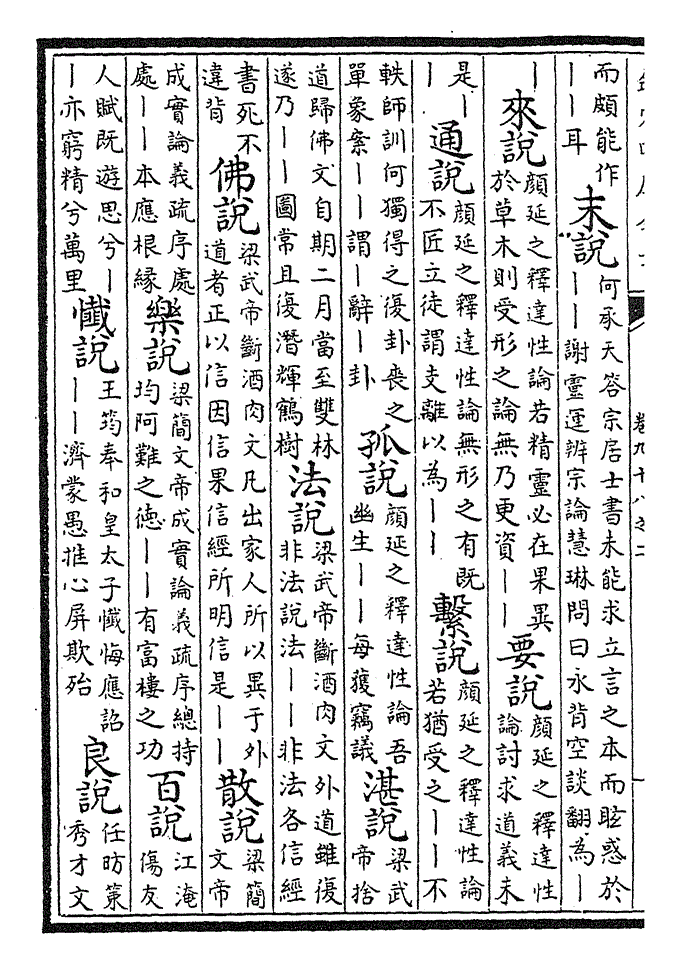 卷九十八之二
而頗能作｜｜耳末說何承天答宗居士書未能求立言之本而眩惑於｜｜謝靈運辨宗論慧琳問曰永背空談翻為｜
｜來說顏延之釋達性論若精靈必在果異於草木則受形之論無乃更資｜｜要說顏延之釋達性論討求道義未
是｜｜｜通說顏延之釋達性論無形之有既不匠立徒謂支離以為｜｜繫說顏延之釋達性論若猶受之｜｜不
軼師訓何獨得之復卦喪之單象案｜｜謂｜辭｜卦孤說顏延之釋達性論吾幽生｜｜每獲竊議湛說梁武帝捨
道歸佛文自期二月當至雙林遂乃｜｜圖常且復潛輝鶴樹法說梁武帝斷酒肉文外道雖復非法說法｜｜非法各信經
書死不違背佛說梁武帝斷酒肉文凡出家人所以異于外道者正以信因信果信經所明信是｜｜散說梁簡文帝
成實論義疏序處處｜｜本應根緣樂說梁簡文帝成實論義疏序總持均阿難之德｜｜有富樓之功百說江淹傷友
人賦既遊思兮｜｜亦窮精兮萬里懺說王筠奉和皇太子懺悔應詔｜｜濟蒙愚推心屏欺殆良說任昉策秀才文